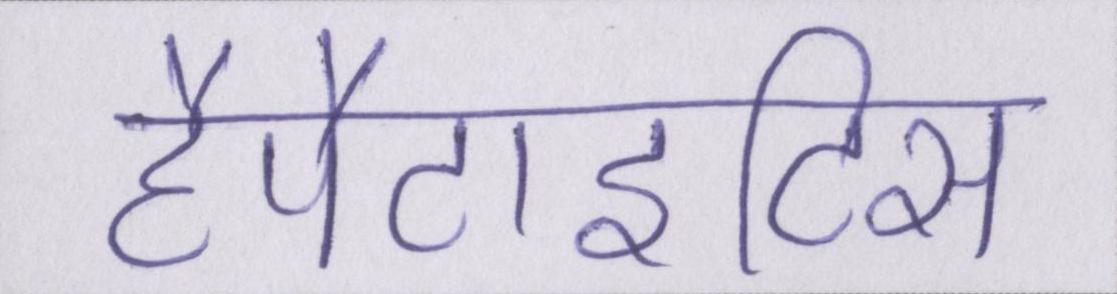 हैपैटाइटिस